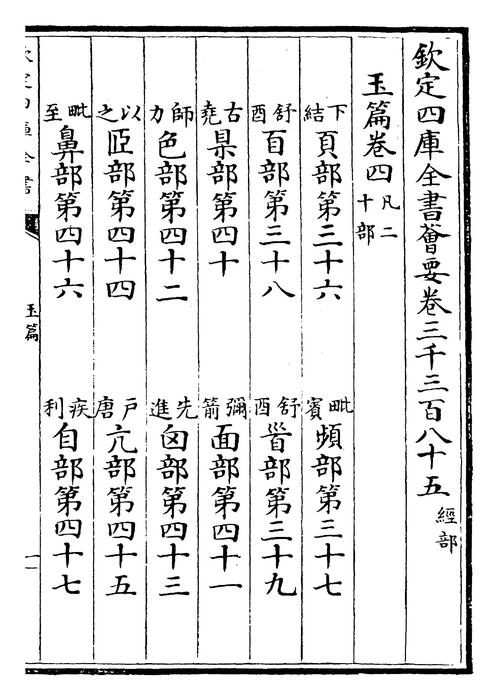 欽定四庫全書薈要卷三千三百八十五 經部
玉篇卷四 凡二十部
下結頁部第三十六 毗賓頻部第三十七
舒酉𦣻部第三十八 舒酉𩠐部第三十九
古堯県部第四十 彌箭面部第四十一
師力色部第四十二 先進囟部第四十三
以之𦣞部第四十四 戶唐亢部第四十五
毗至鼻部第四十六 疾利自部第四十七
玉篇
一